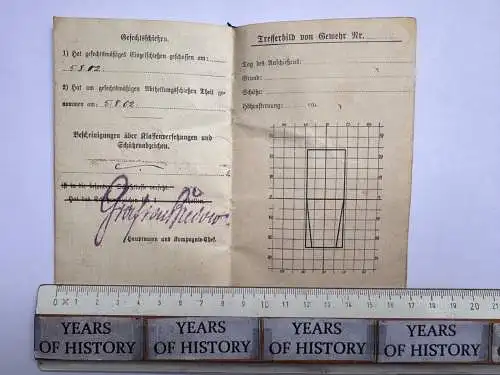 Gefechtsschießen.
1) Hat gefechtsmäßiges Einzelschießen geschossen am:
5.8.02.
2) Hat am gefechtsmäßigen Abtheilungsschießen Theil ge-
nommen am: 5.8.02.
Bescheinigungen über Klassenversetzungen und
Schützenabzeichen.
ist in die besondere Schießklasse versetzt.
Hauptmann und Kompagnie-Chef.
Trefferbild von Gewehr Nr.
Tag des Anschießens:
Grund:
Schütz:
Witterung:
0 1 2 3 4 5 6 7 8 9 10 11 12 13 14 15 16 17 18 19 20 21
YEARS OF HISTORY YEARS OF HISTORY YEARS OF HISTORY YEARS OF HISTORY